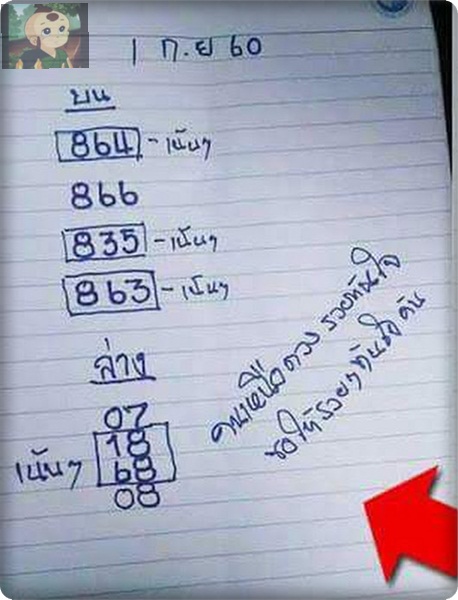 1 ก.ย 60
บน
864 - เน้นๆ
866
835 - เน้นๆ
863 - เน้นๆ
ล่าง
07
18
เน้นๆ 68
08
คนเหนือดวง รวยทันใจ
ขอให้รวยๆทันใจ คับ